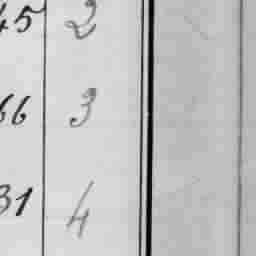 45 2
66 3
31 4